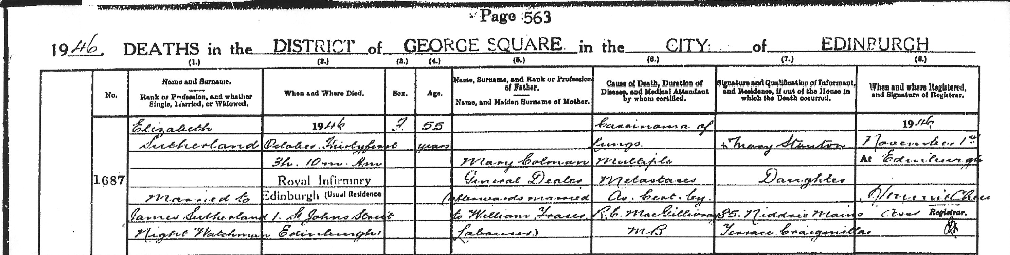 Page 563
1946. DEATHS in the DISTRICT of GEORGE SQUARE in the CITY of EDINBURGH
(1.) (2.) (3.) (4.) (5.) (6.) (7.) (8.)
No.
Name and Surname.
Rank or Profession, and whether Single, Married, or Widowed.
When and Where Died.
Sex.
Age.
Name, Surname, and Rank or Profession of Father.
Name, and Maiden Surname of Mother.
Cause of Death, Duration of Disease, and Medical Attendant by whom certified.
Signature and Qualification of Informant, and Residence, if out of the House in which the Death occurred.
When and where Registered, and Signature of Registrar.
1687
Elizabeth
Sutherland
Married to
James Sutherland
Night Watchman
1946
October Thirtyfirst
3h. 10m. AM
Royal Infirmary
Edinburgh (Usual Residence
1. St Johns Street
Edinburgh)
F
55
years
Mary Colman
General Dealer
(afterwards married
to William Fraser
Labourer)
Carcinoma of
Lungs
Multiple
Metastases
As Cert. by
M.B.
Mary
Daughter
85. Niddrie Mains
Terrace Craigmillar
1946
November 1st
At Edinburgh
Registrar.